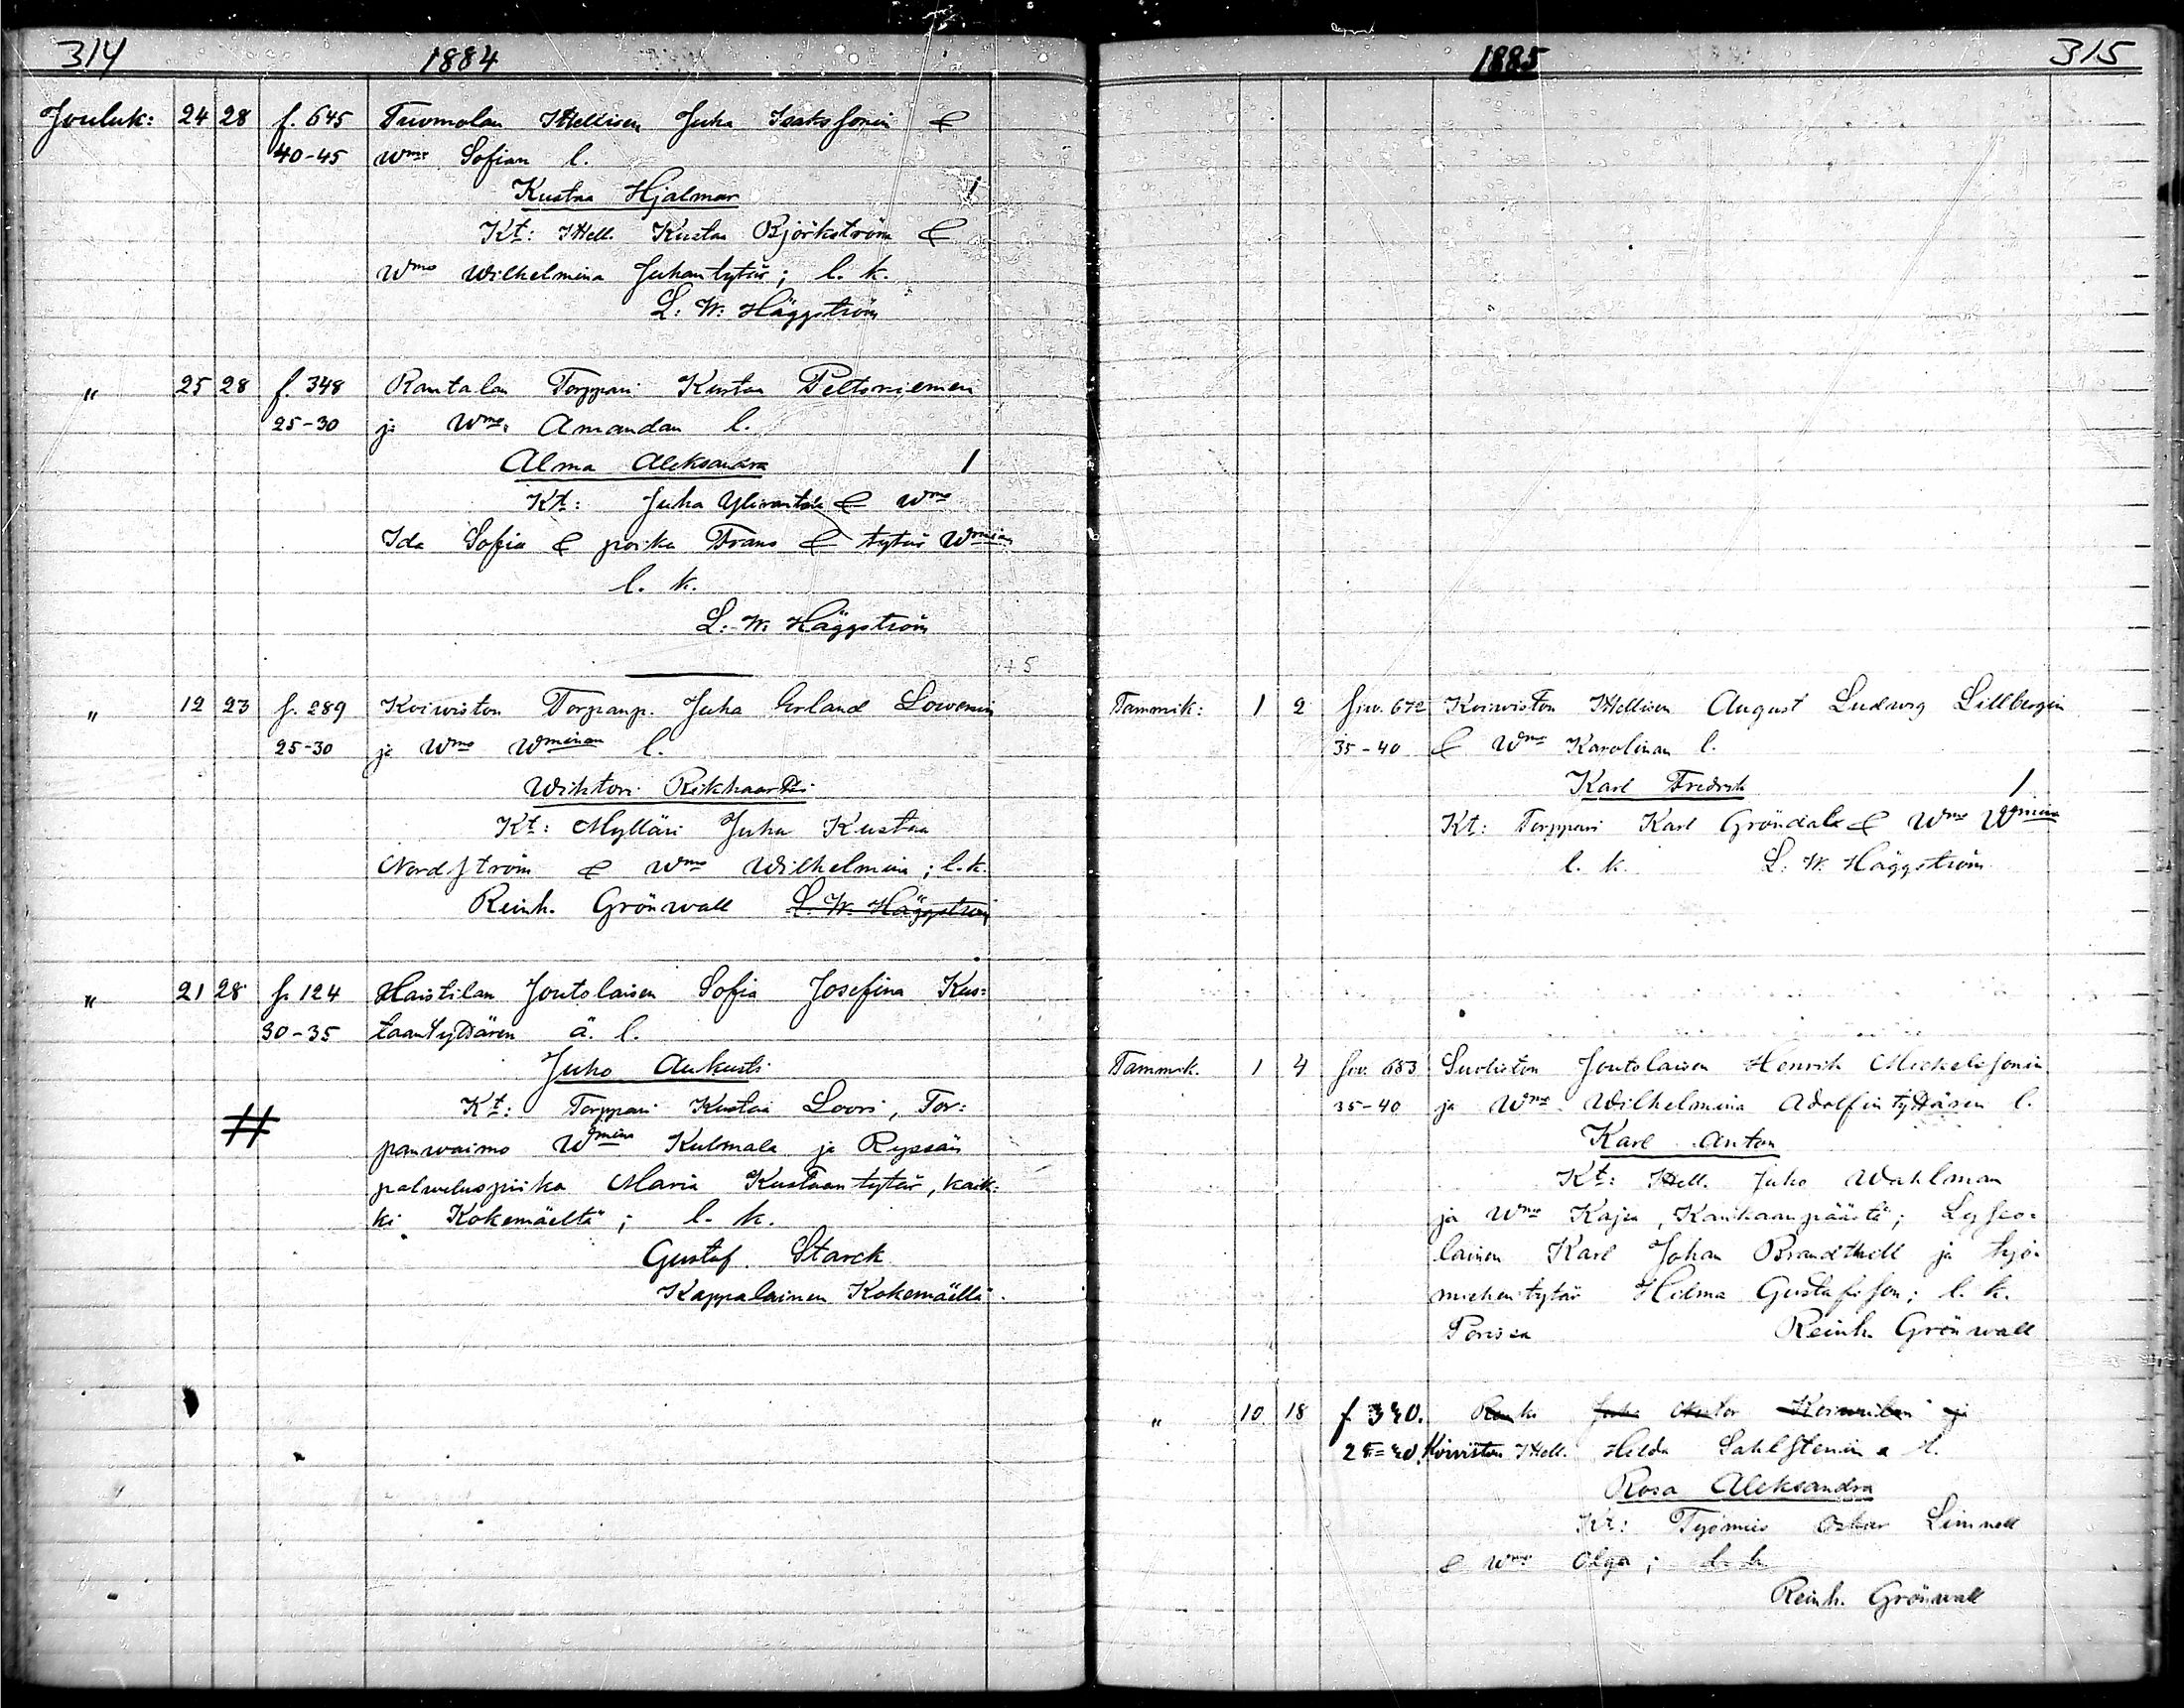 314 1884
Jouluk: 24 28 f. 645 Tuomolan Itsellisen Juha Isakssonin &
40-45 Wmo Sofian l.
Kustaa Hjalmar 1
Kt: Itsell. Kustaa Björkström &
Wmo Wilhelmina Juhantytär; l. k.
L. W. Häggström
" 25 28 f. 348 Rantalan Torppari Kustaa Peltoniemen
25-30 ja Wmo Amandan l.
Alma Aleksandra 1
Kt: Juha Ylirantala & Wmo
Ida Sofia & poika Frans & tytär Wmina
l. k.
L. W. Häggström
" 12 23 f. 289 Koiwiston Torpanp. Juha Erland Lowenin
25-30 ja Wmo Wminan l.
Wiktori Rikhaartti
Kt: Mylläri Juha Kustaa
Nordström & Wmo Wilhelmina; l. k.
Reinh. Grönwall L. W. Häggström
" 21 28 f. 124 Haistilan Joutolaisen Sofia Josefina Kus=
30-35 taantyttären ä. l.
Juho Aukusti
Kt: Torppari Kustaa Loori, Tor=
# panwaimo Wmina Kulmala ja Ryssän
palweluspiika Maria Kustaantytär, kaik=
ki Kokemäeltä; l. k.
Gustaf Starck
Kappalainen Kokemäellä.
1885 315
Tammik: 1 2 siv. 672 Koiwiston Itsellisen August Ludwig Lillbergin
35-40 & Wmo Karolinan l.
Karl Fredrik 1
Kt: Torppari Karl Gröndal & Wmo Wmina
l. k. L. W. Häggström
Tammik. 1 4 siv. 683 Suoliston Joutolaisen Henrik Mickelssonin
35-40 ja Wmo Wilhelmina Adolfintyttären l.
Karl Anton
Kt: Itsell. Juho Wahlman
ja Wmo Kajsa, Kankaanpäästä; Lyseo=
lainen Karl Johan Brandthell ja työ=
miehentytär Hilma Gustafsson; l. k.
Porissa Reinh. Grönwall
" 10 18 f. 340. Renki Juha Koiwulan ja
25=30. Koiviston Itsell. Hilda Sahlstenin a l.
Rosa Aleksandra
Kt: Työmies Oskar Limnell
& Wmo Olga; l. k.
Reinh. Grönwall